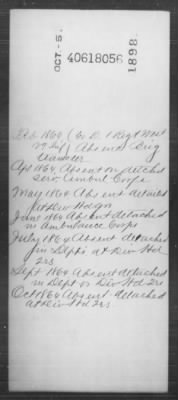 OCT.-5.
40618056
1898.
Feb 1864 (Co D 1 Regt
Absent Brig
Teamster
Apr 1864 Absent on detached
serv Ambul Corps
May 1864 Absent detailed
at Div Hdqrs
June 1864 Absent detached
in Ambulance Corps
July 1864 Absent detached
in Dept at Div Hd
2rs
Sept 1864 Absent detached
in Dept or Div Hd 2rs
Oct 1864 Absent detached
at Div Hd 2rs